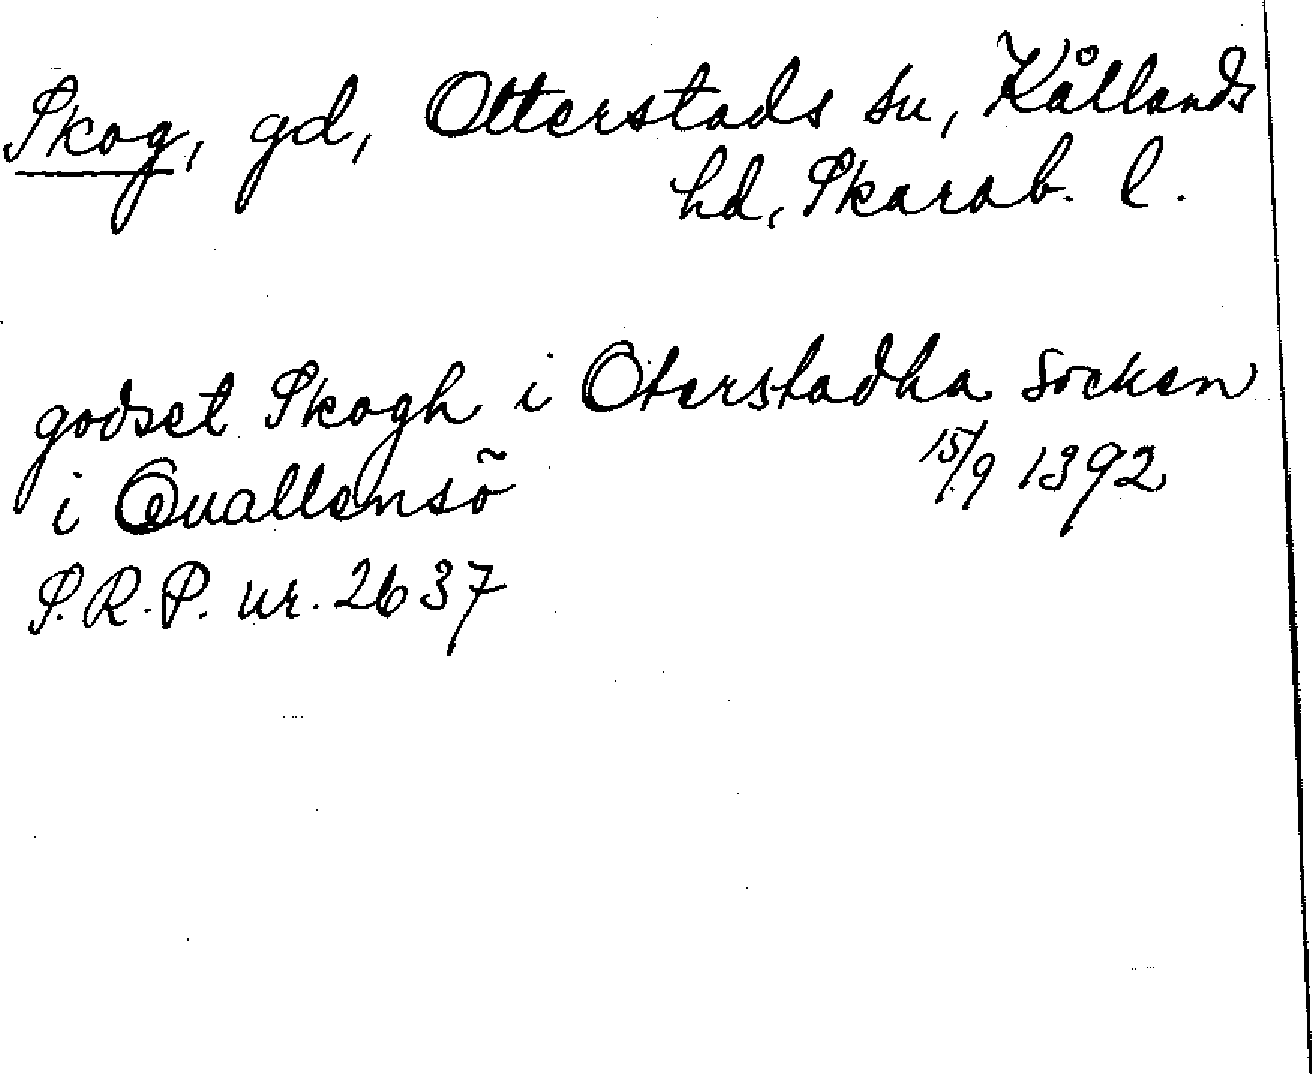 Skog, gd, Otterstads sn, Kållands
hd, Skarab. l.
godset Skogh i Oterstadha socken
i Quallensõ 15/9 1392
S.R.P. nr. 2637